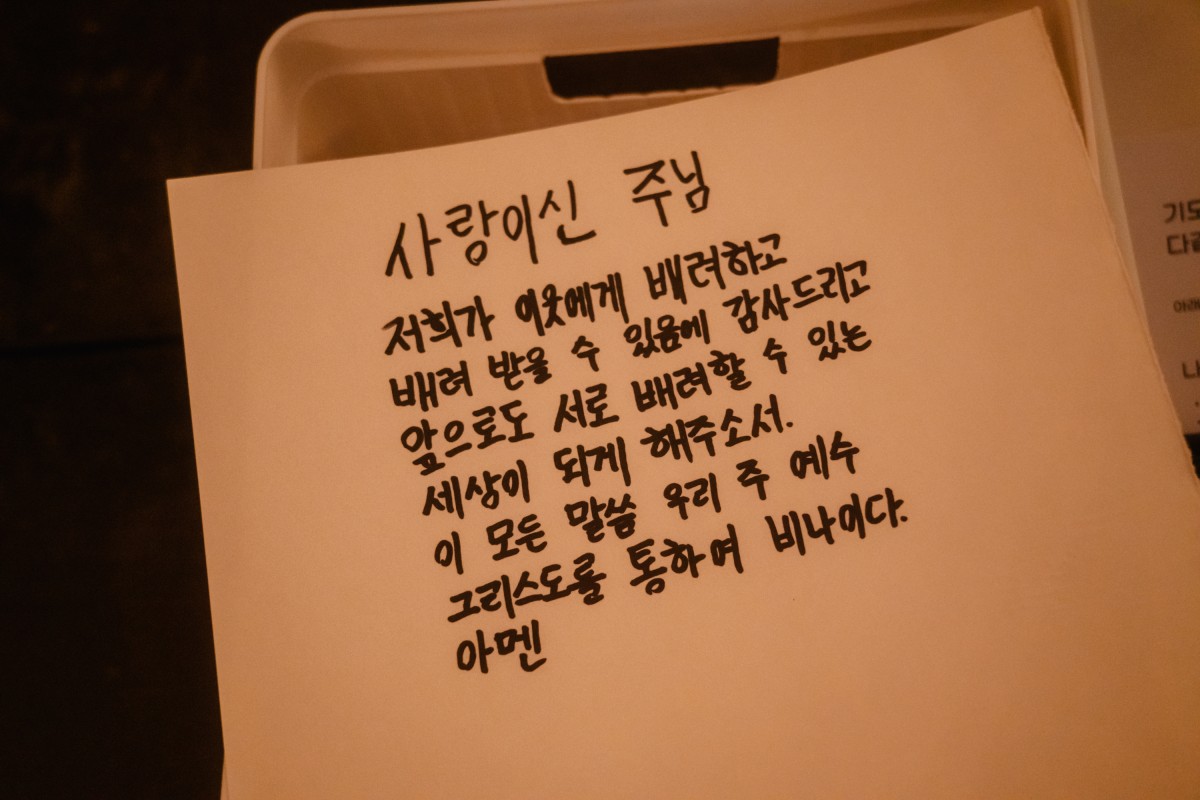 사랑이신 주님
저희가 이웃에게 배려하고
배려 받을 수 있음에 감사드리고
앞으로도 서로 배려할 수 있는
세상이 되게 해주소서.
이 모든 말씀 우리 주 예수
그리스도를 통하여 비나이다.
아멘
기도